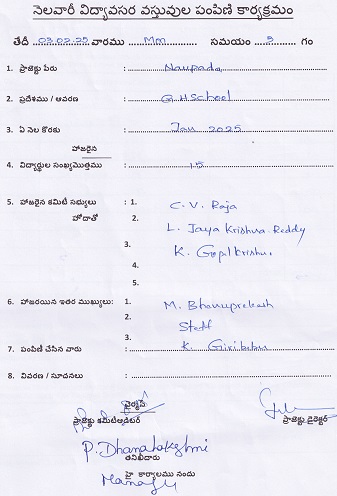 నెలవారీ విద్యావసర వస్తువుల పంపిణి కార్యక్రమం
తేదీ 03.02.25 వారము Mm సమయం 5 గం
1. ప్రాజెక్టు పేరు : Naupada
2. ప్రదేశము / ఆవరణ : G.H School
3. ఏ నెల కొరకు : Jan 2025
హాజరైన
4. విద్యార్థుల సంఖ్యమొత్తము : 15
5. హాజరైన కమిటీ సభ్యులు : 1. C. V. Raja
హోదాతో 2. L. Jaya Krishna Reddy
3. K. Gopal Krishna
4.
5.
6. హాజరయిన ఇతర ముఖ్యులు: 1. M. Bhanuprakash
2. Staff
3.
7. పంపిణి చేసిన వారు : K. Giribabu
8. వివరణ / సూచనలు :
చైర్మన్
ప్రాజెక్టు కమిటీఆడిటర్ ప్రాజెక్టు డైరెక్టర్
P. Dhanalakshmi
తనిఖీదారు
హై కార్యాలయం నందు